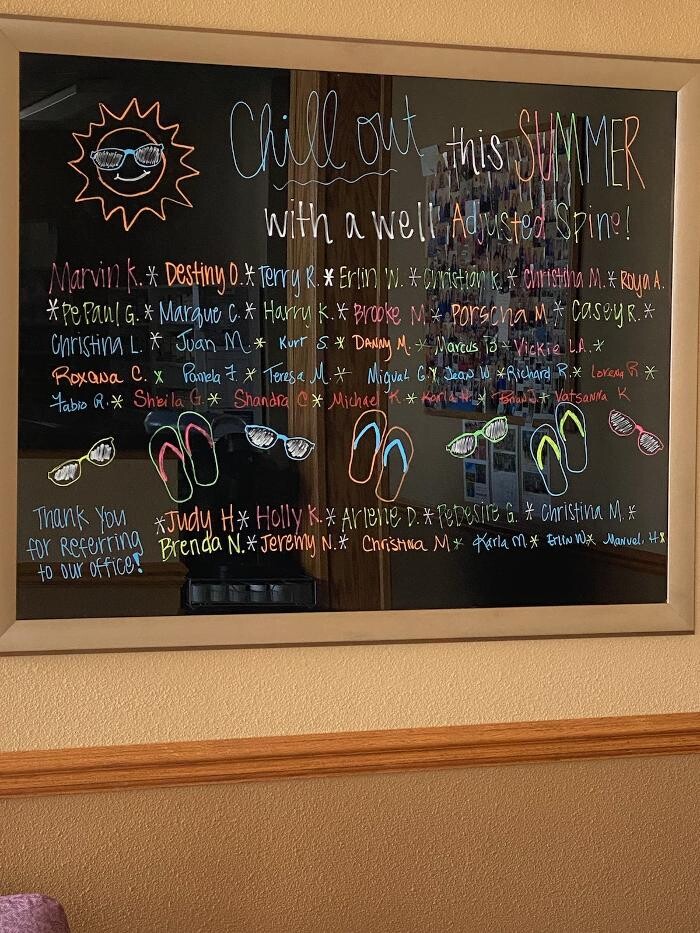 Chill out this SUMMER
with a well Adjusted Spine!
Marvin K. * Destiny O. * Terry R. * Erlin W. * Christian K. * Christina M. * Roya A.
* PePaul G. * Marque C. * Harry K. * Brooke M. * Porscha M. * Casey R. *
Christina L. * Juan M. * Kurt S. * Danny M. * Marcus B * Vickie L.A. *
Roxana C. * Pamela F. * Teresa M. * Miguel G. * Jean W * Richard R. * Lorena R *
Fabio R. * Sheila G. * Shandra C * Michael K. * Karla H. * Vatsanna K
Thank You
for Referring
to our office!
* Judy H * Holly K. * Arlene D. * PeDesire G. * Christina M. *
Brenda N. * Jeremy N. * Christina M * Karla M. * Erlin W. * Manuel. H *